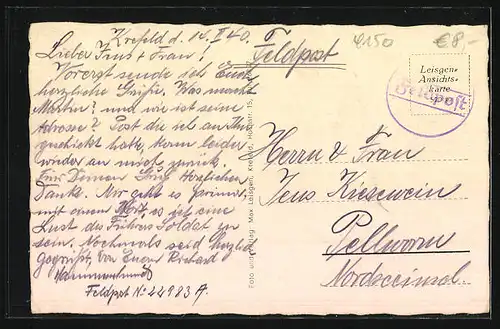 Krefeld d. 10. II 40.
Lieber Jens + Frau!
Vorerst sende ich Euch
herzliche Grüße. Was macht
und wie ist seine
Adresse? Post die ich an ihn
geschickt hatte, kam leider
wieder an mich zurück.
Für Deinen Gruß herzlichen
Dank. Mir geht es prima,
mit einem Wort, es ist eine
Lust des Führers Soldat zu
sein. Nochmals seid herzlich
gegrüßt, von Euern Richard
Feldpost No 22983 A.
Feldpost
2150
€8,-
Leisgen-
Ansichts-
karte
Feldpost
Herrn & Frau
Jens Kiesewein
Pellworm
Nordseeinsel.
Foto und Verlag Max Leisgen, Krefeld, 15,